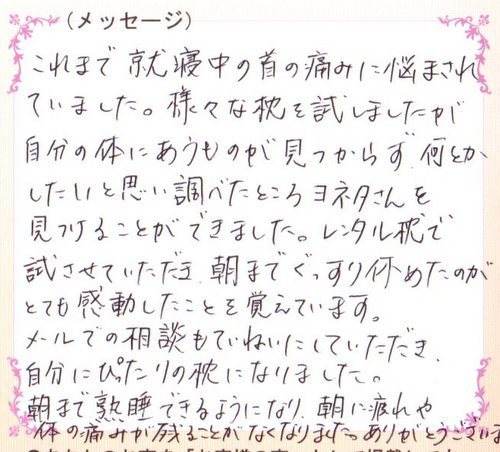 （メッセージ）
これまで就寝中の首の痛みに悩まされ
ていました。様々な枕を試しましたが
自分の体にあうものが見つからず、何とか
したいと思い調べたところヨネタさんを
見つけることができました。レンタル枕で
試させていただき、朝までぐっすり休めたのが
とても感動したことを覚えています。
メールでの相談もていねいにしていただき、
自分にぴったりの枕になりました。
朝まで熟睡できるようになり、朝に疲れや
体の痛みが残ることがなくなりました。ありがとうございま